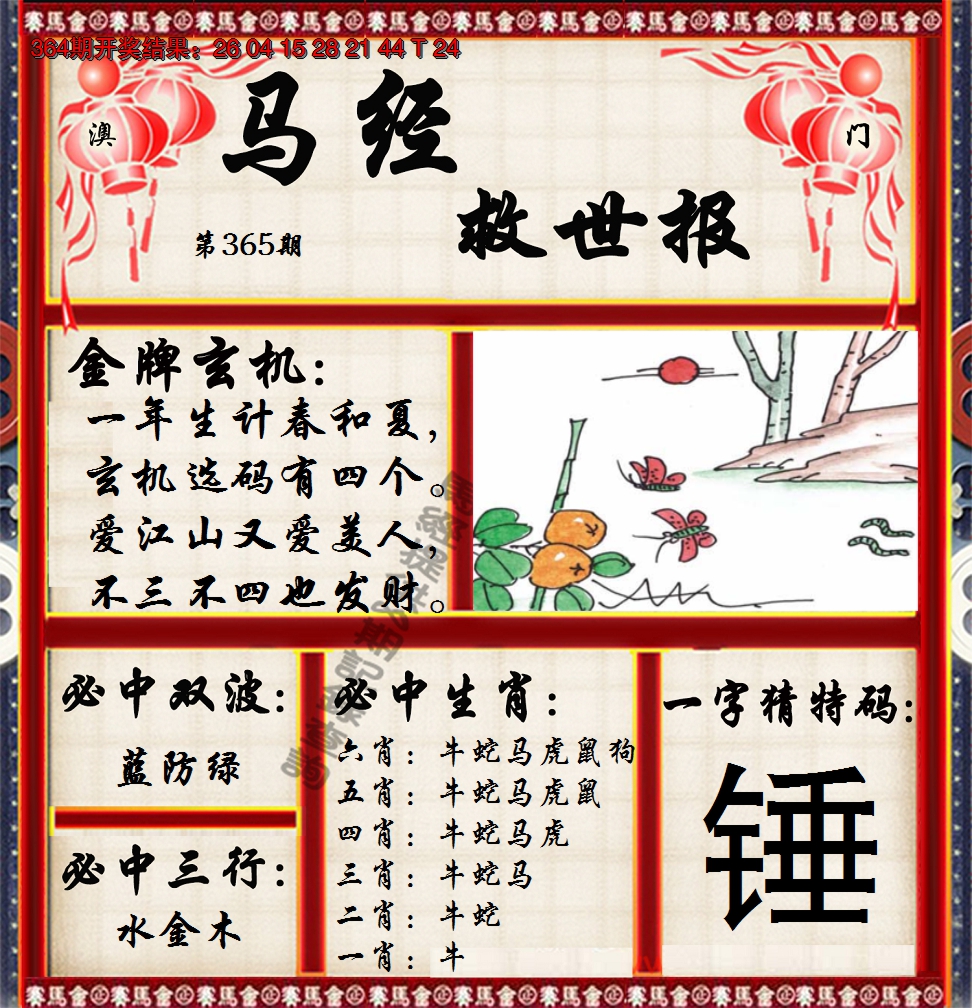 364期开奖结果：26 04 15 28 21 44 T 24
澳
门
马经
救世报
第365期
金牌玄机：
一年生计春和夏，
玄机选码有四个。
爱江山又爱美人，
不三不四也发财。
必中双波：
蓝防绿
必中三行：
水金木
必中生肖：
六肖：牛蛇马虎鼠狗
五肖：牛蛇马虎鼠
四肖：牛蛇马虎
三肖：牛蛇马
二肖：牛蛇
一肖：牛
一字猜特码：
锤